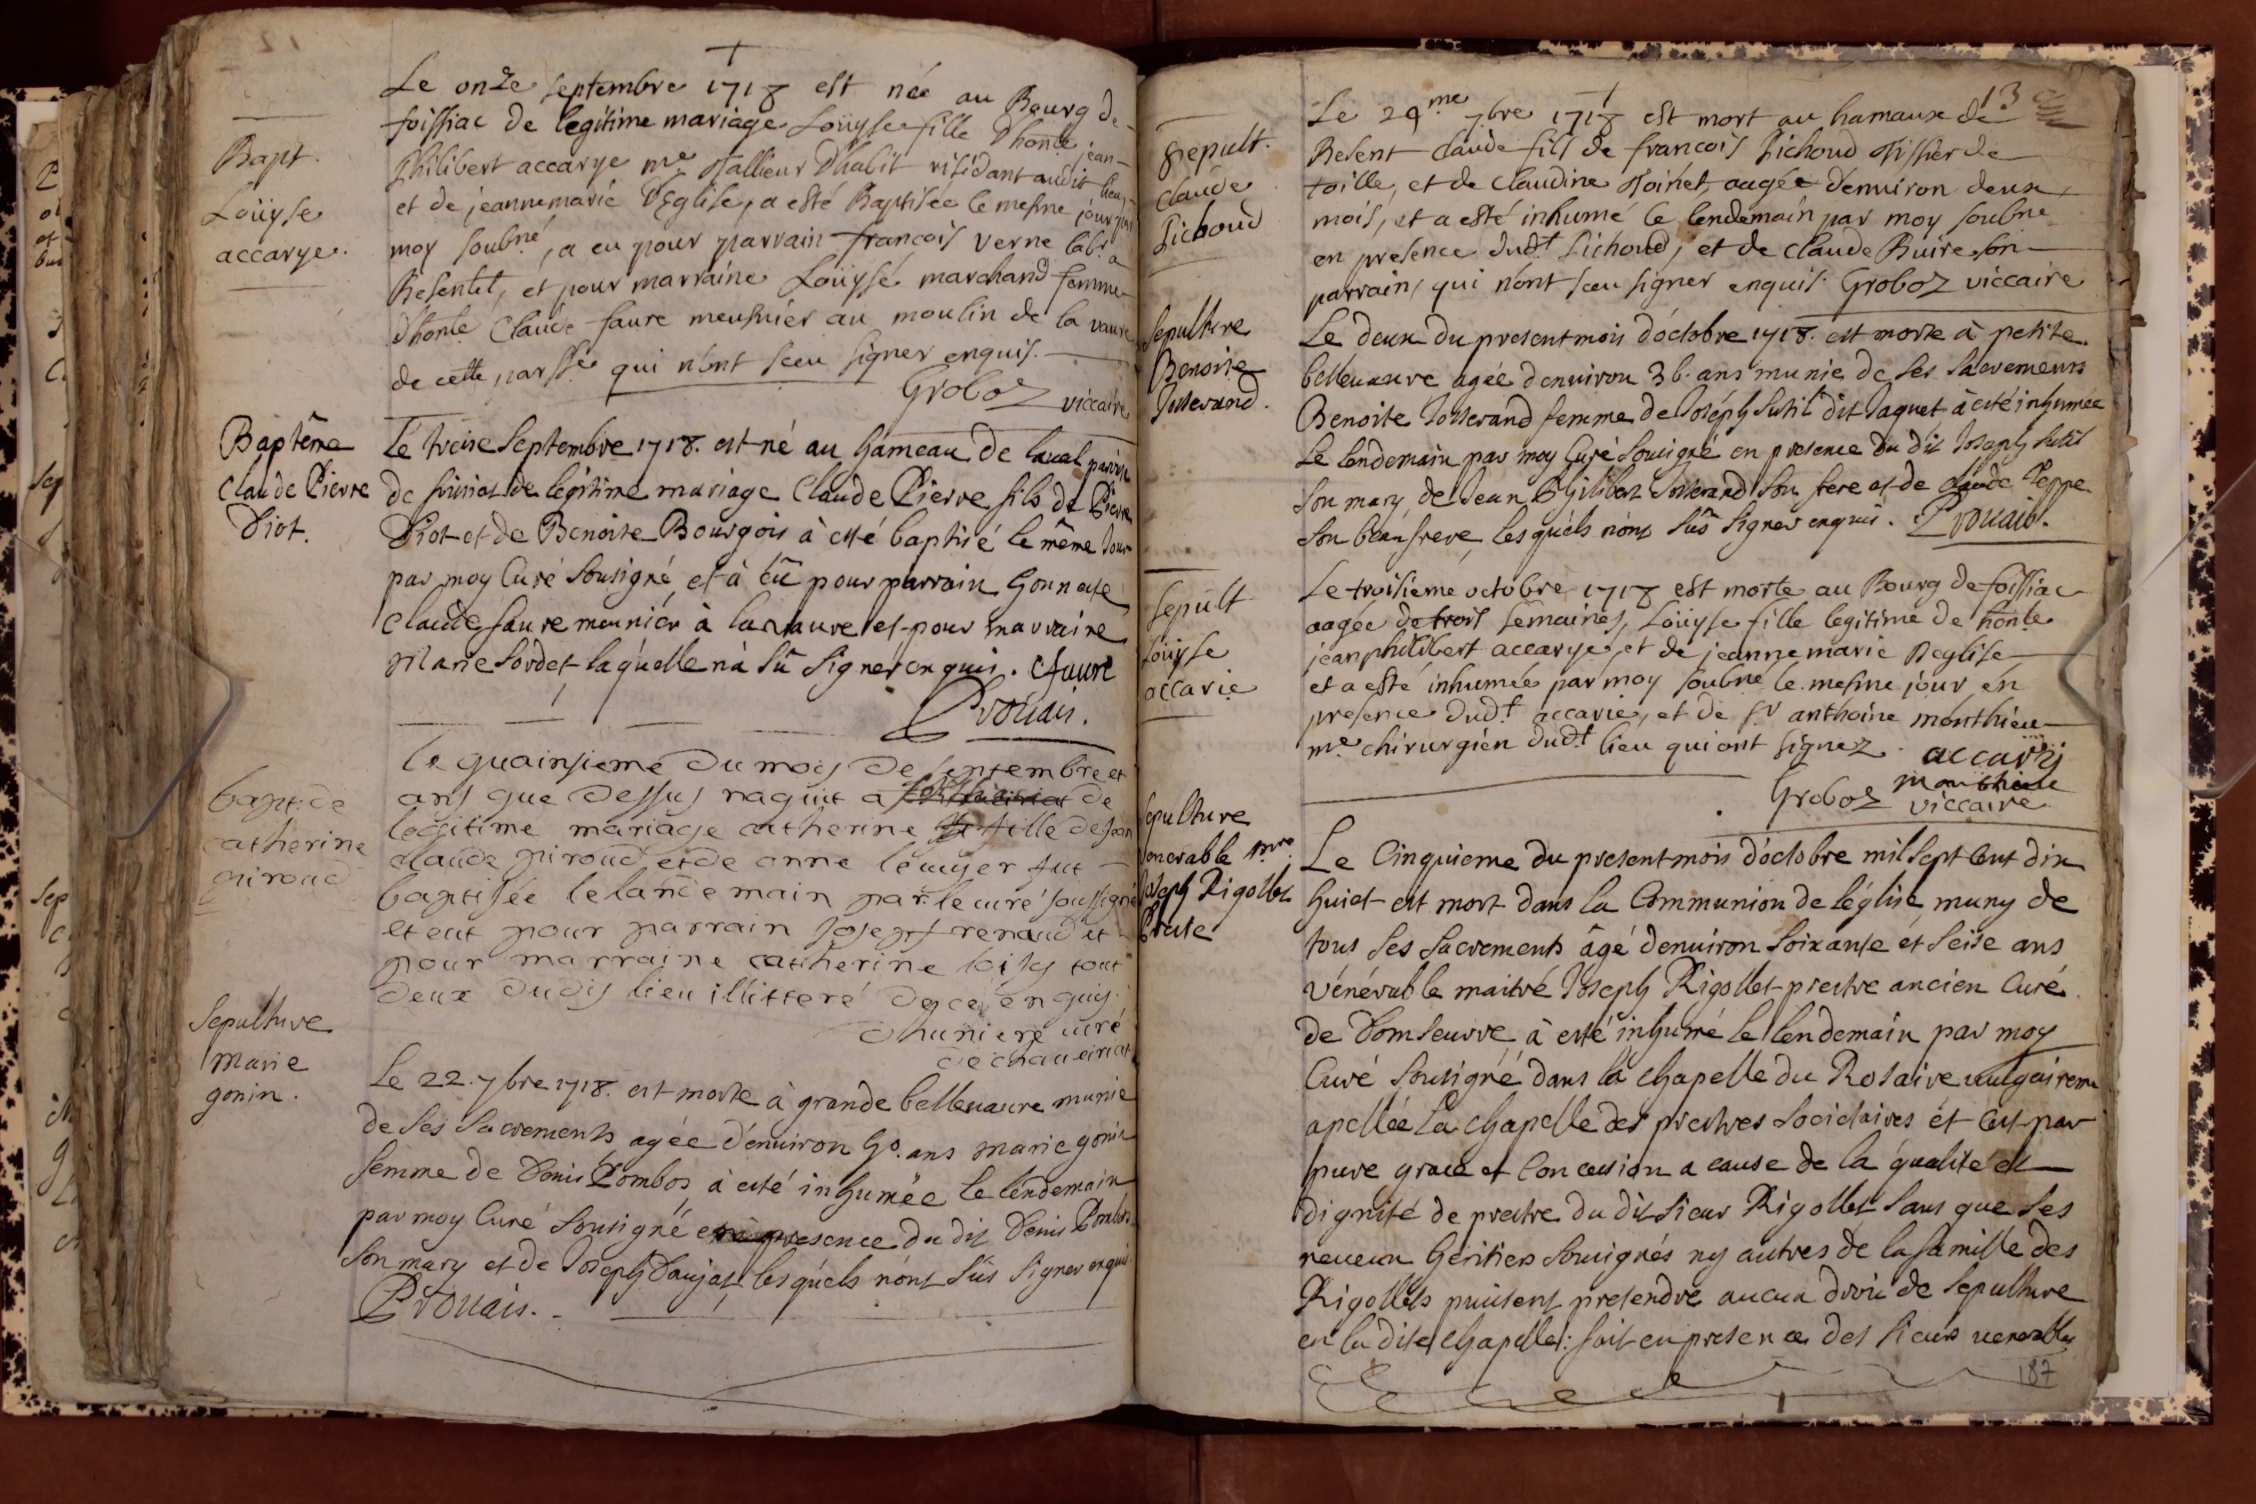 Bapt.
Loüyse
accarye.
Le onze septembre 1718 est née au Bourg de
foissiac de legitime mariage Loüyse fille D'honle jean
Philibert accarye me Tallieur D'habit residant audit lieu,
et de jeannemarie D'Eglise, a esté Baptisée le mesme jour par
moy soubné, a eu pour parrain francois verne labr a
Besentet, et pour marraine Loüyse marchand femme
d'honle Claude faure meusnier au moulin de la vaure
de cette parsse qui n'ont sceu signer enquis.
Groboz viccaire
Baptême
Claude Pierre
Diot.
Le treise Septembre 1718. est né au hameau de laual paroisse
de foissiat de legitime mariage Claude Pierre fils de Pierre
Diot et de Benoite Bourgois à esté baptisé le même Jour
par moy Curé Sousigné, et à eû pour parrain honneste
Claude faure meunier à la vaure et pour marraine
Marie Sordet laquelle n'à sû signer enquis. Cfaure
Provais.
bapt. de
catherine
piroud
le quainsieme du mois de septembre et
ans que dessus naquit a de
legitime mariage catherine fille de Jean
claude piroud et de anne l'ecuyer fut
baptisée le landemain par le curé soussigné
et eut pour parrain Joseph renaud et
pour marraine catherine loisy tout
deux dudis lieu illitteré de ce enquis.
curé
de chaveiriat
Sepulture
Marie
gonin.
Le 22. 7bre 1718. est morte à grande bellevavre munie
de ses Sacrements agée d'environ 60. ans marie gonin
femme de Denis Pombos à esté inhumée le lendemain
par moy Curé Sousigné en presence du dit Denis Pombos
Son mary et de Joseph Daujat lesquels n'ont sûs signer enquis
Provais.
13
Sepult.
claude
Pichoud
Le 29me 7bre 1718 est mort au hamaux de
Besent claude fils de francois Pichoud Tissier de
toille, et de claudine Toinet, aagée d'environ deux
mois, et a esté inhumé le lendemain par moy soubné
en presence dudt Pichoud, et de claude Buire son
parrain, qui n'ont sceu signer enquis. Groboz viccaire
Sepulture
Benoite
Josserand.
Le deux du present mois d'octobre 1718. est morte à petite
bellevavre agée d'environ 36. ans munie de ses sacrements
Benoite Josserand femme de Joseph Sutil dit Jaquet à esté inhumée
Le lendemain par moy Curé Sousigné en presence du dit Joseph Sutil
Son mary, de Jean Philibert Josserand Son frere et de claude Teppe
Son beau frere, lesquels n'ont sûs signer enquis. Provais.
Sepult
Loüyse
accarie
Le troisieme octobre 1718 est morte au Bourg de foissiac
aagée de trois semaines, Loüyse fille legitime de honle
jeanphilibert accarye, et de jeannemarie Deglise
et a esté inhumée par moy soubné le mesme jour en
presence dudt accarie, et de sr anthoine monthieu
me chirurgien dudt lieu qui ont signez. accary
monthieu
Groboz viccaire
Sepulture
Venerable mre
Joseph Rigollet
Prestre
Le Cinquieme du present mois d'octobre mil sept Cent dix
huict est mort dans la Communion de l'église, muny de
tous Ses Sacrements âgé d'environ Soixante et Seise ans
Vénérable maitre Joseph Rigollet prestre ancien Curé
de Domseurre à esté inhumé le lendemain par moy
Curé Sousigné dans la Chapelle du Rosaire vulgairement
apellée La chapelle des prestres Societaires et C'est par
pure grace et Concession a cause de la qualité et
dignité de prestre du dit Sieur Rigollet Sans que Ses
neveux heritiers Sousignés ny autres de la famille des
Rigollets puissent pretendre aucun droit de Sepulture
en la dite Chapelle: fait en presence des Sieurs venerables
187